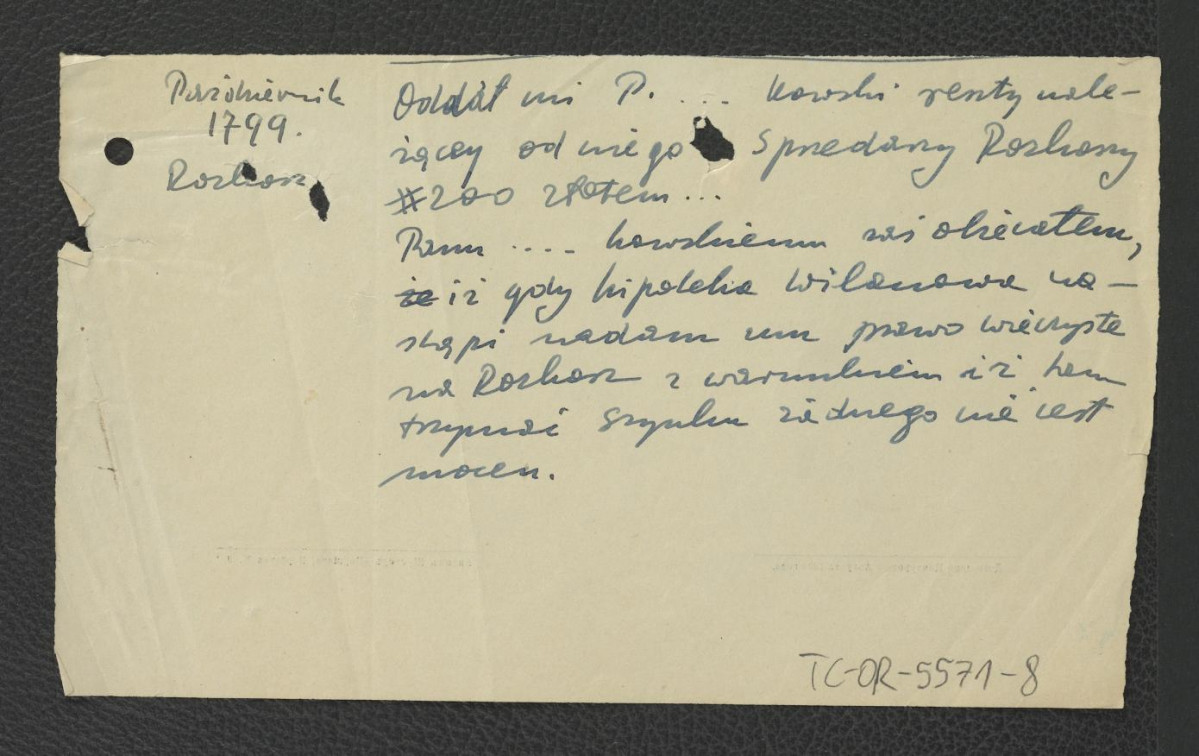 Październik
1799.
Rozkosz
Oddał mi P. .... kowski reszty nale-
żącey od niego Sprzedaży Rozkoszy
#200 złotem...
Panu .... kowskiemu zaś obiecałem,
że iż gdy hipoteka Wilanowa na-
stąpi nadam mu prawo wieczyste
na Rozkosz z warunkiem iż tam
trzymać Szynku żadnego nie iest
mocen.
TC-OR-5571-8